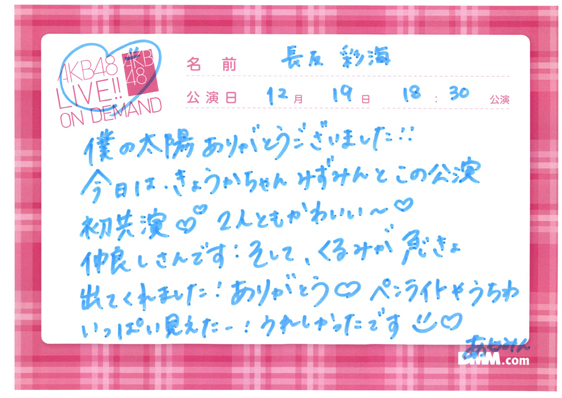 AKB48
LIVE!!
ON DEMAND
AKB
48
名 前 長友 彩海
公演日 12月 19日 18:30 公演
僕の太陽 ありがとうございました!!
今日は、きょうかちゃん みずみんとこの公演
初共演♡♡ 2人ともかわいい〜♡
仲良しさんです! そして、くるみが 急きょ
出てくれました! ありがとう♡ ペンライトやうちわ
いっぱい見えたー! うれしかったです ♡
あやみん
.com